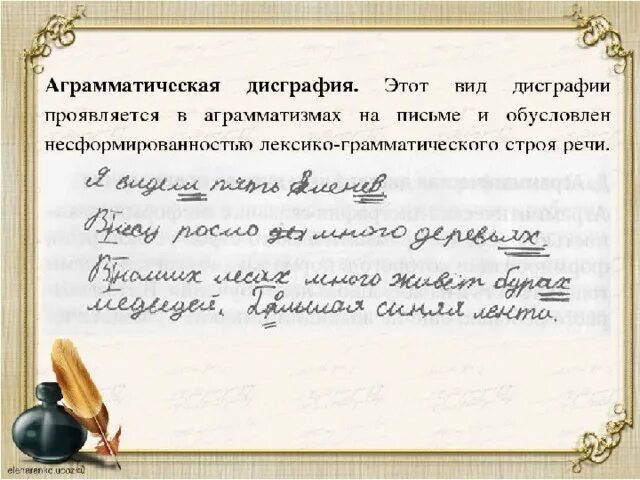 Аграмматическая дисграфия. Этот вид дисграфии
проявляется в аграмматизмах на письме и обусловлен
несформированностью лексико-грамматического строя речи.
Я видели пять еленев
Влесу росло много деревьях
Внаших лесах много живёт бурах
медведей. Большая синяя лента.
elenarenko.ucoz.ru